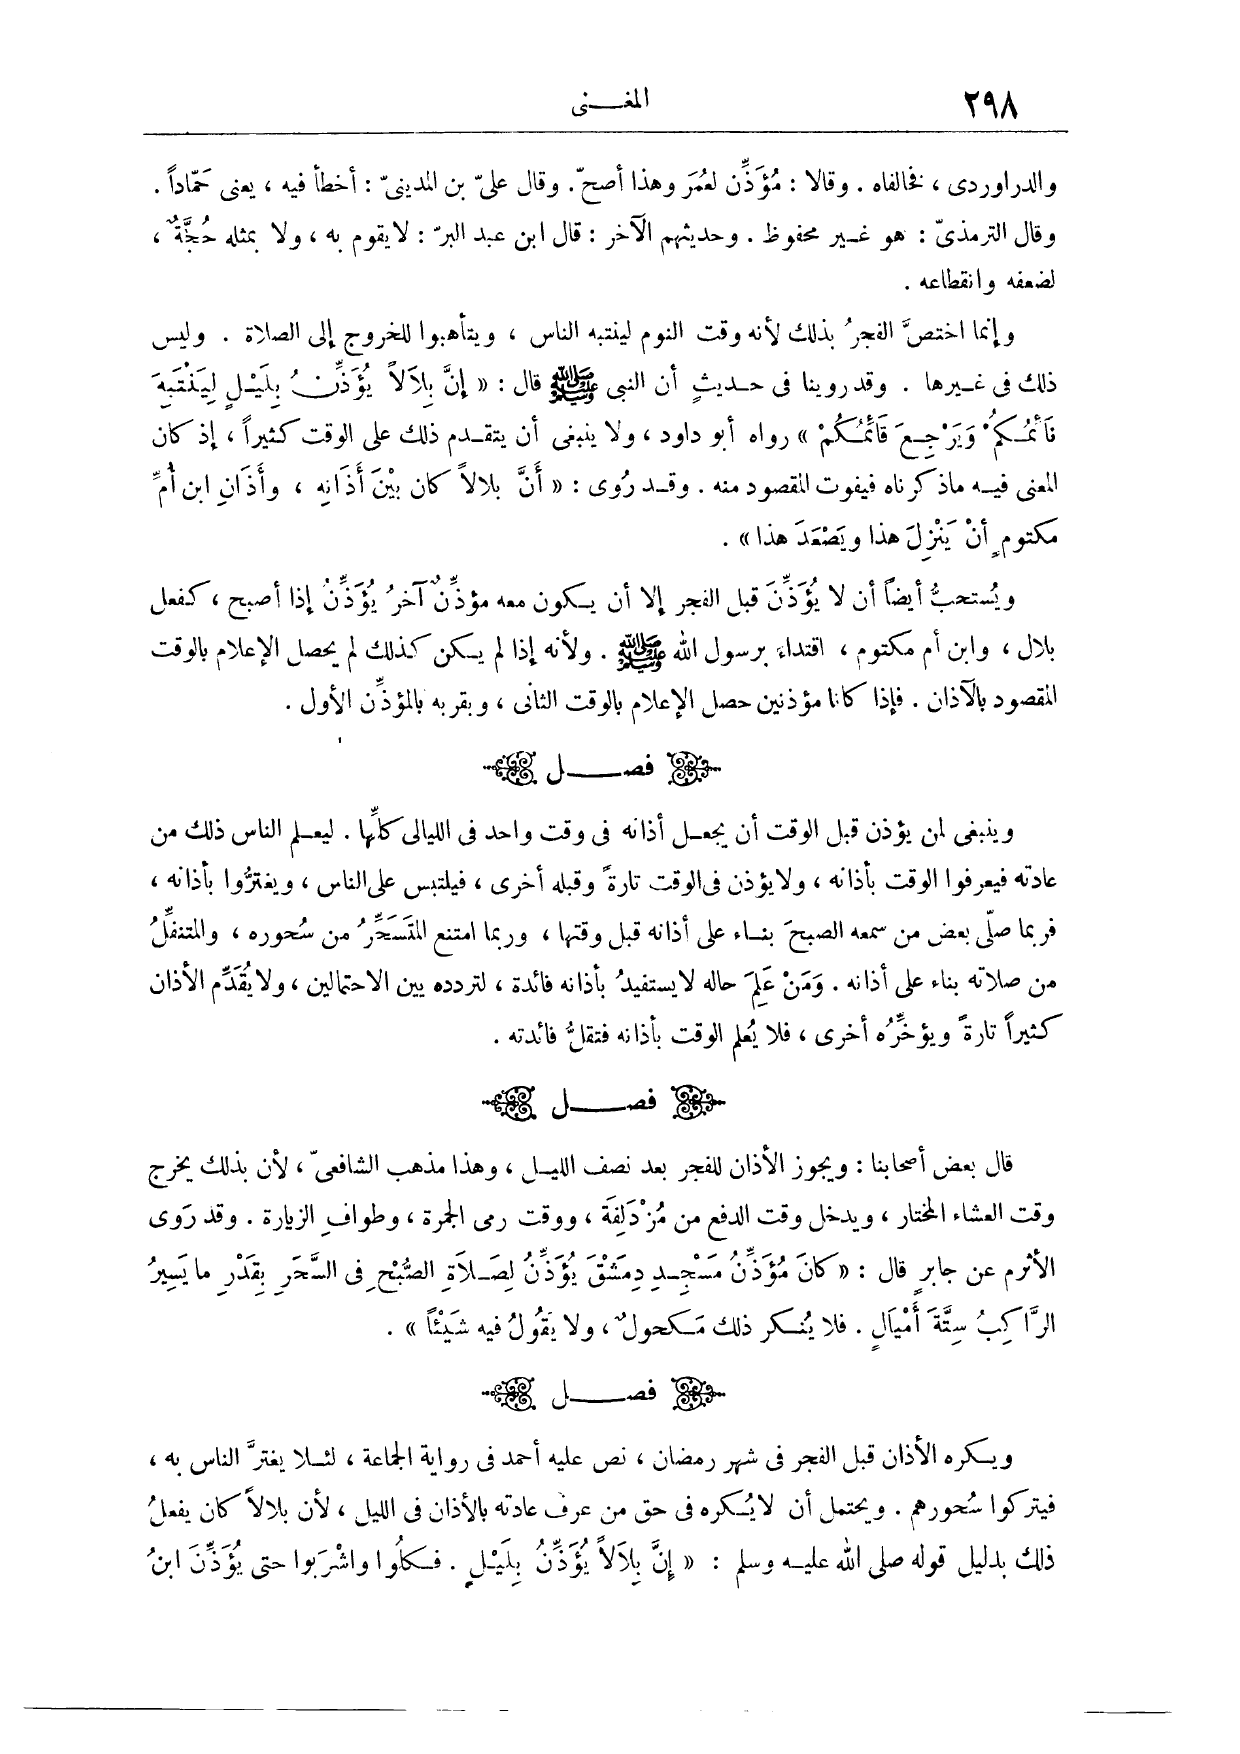 ٢٩٨
المغـــنى
والدراوردى ، فخالفاه . وقالا : مُؤَذِّن لعُمَر وهذا أصحّ. وقال علىّ بن المدينىّ : أخطأ فيه ، يعنى حَمّاداً .
وقال الترمذىّ : هو غـير محفوظ . وحديثهم الآخر : قال ابن عبد البرّ : لا يقوم به ، ولا بمثله حُجَّةٌ ،
لضعفه وانقطاعه .
وإنما اختصَّ الفجرُ بذلك لأنه وقت النوم لينتبه الناس ، ويتأهبوا للخروج إلى الصلاة . وليس
ذلك فى غـيرها . وقد روينا فى حـديثٍ أن النبى ﷺ قال : « إنَّ بِلاَلاً يُؤَذِّنُ بِلَيْـلٍ لِيَنْتَبِهَ
نَائِمُـكُمْ وَيَرْجِـعَ قَائِمُـكُمْ » رواه أبو داود ، ولا ينبغى أن يتقـدم ذلك على الوقت كثيراً ، إذ كان
المعنى فيـه ماذكرناه فيفوت المقصود منه . وقـد رُوى : « أَنَّ بلالاً كان بيْنَ أَذَانِه ، وأَذَانِ ابن أُمِّ
مكتومٍ أنْ يَنْزِلَ هذا ويَصْعَدَ هذا » .
ويُستحبُّ أيضاً أن لا يُؤَذِّنَ قبل الفجر إلا أن يـكون معه مؤذِّنٌ آخرُ يُؤَذِّنُ إذا أصبح ، كفعل
بلال ، وابن أم مكتوم ، اقتداءَ برسول الله ﷺ . ولأنه إذا لم يـكن كـذلك لم يحصل الإعلام بالوقت
المقصود بالآذان . فإذا كانا مؤذنين حصل الإعلام بالوقت الثانى ، وبقربه بالمؤذِّن الأول .
فصـــــل
وينبغى لمن يؤذن قبل الوقت أن يجعـل أذانه فى وقت واحد فى الليالى كلِّها . ليعـلم الناس ذلك من
عادته فيعرفوا الوقت بأذانه ، ولا يؤذن فى الوقت تارةً وقبله أخرى ، فيلتبس على الناس ، ويغترُّوا بأذانه ،
فربما صلّى بعض من سمعه الصبحَ بنـاء على أذانه قبل وقتها ، وربما امتنع المتَسَحِّرُ من سُحوره ، والمتنفِّلُ
من صلاته بناء على أذانه . وَمَنْ عَلِمَ حاله لا يستفيدُ بأذانه فائدة ، لتردده بين الاحتمالين ، ولا يُقَدِّم الأذان
كثيراً تارةً ويؤخِّرُه أخرى ، فلا يُعلم الوقت بأذانه فتقلُّ فائدته .
فصـــــل
قال بعض أصحابنا : ويجوز الأذان للفجر بعد نصف الليـل ، وهذا مذهب الشافعىّ ، لأن بذلك يخرج
وقت العشاء المختار ، ويدخل وقت الدفع من مُزْدَلِفَة ، ووقت رمى الجمرة ، وطوافِ الزيارة . وقد رَوى
الأثرم عن جابرٍ قال : « كانَ مُؤَذِّنُ مَسْجِـدِ دِمَشْقَ يُؤَذِّنُ لِصَـلاَةِ الصُّبْحِ فى السَّحَرِ بِقَدْرِ ما يَسِيرُ
الرَّاكِبُ سِتَّةَ أَمْيَالٍ . فلا يُنْـكر ذلك مَـكحولٌ ، ولا يقُولُ فيه شَيْئاً » .
فصـــــل
ويـكره الأذان قبل الفجر فى شهر رمضان ، نص عليه أحمد فى رواية الجماعة ، لئـلا يغترَّ الناس به ،
فيتركوا سُحورهم . ويحتمل أن لا يُـكره فى حق من عرف عادته بالأذان فى الليل ، لأن بلالاً كان يفعلُ
ذلك بدليل قوله صلى الله عليـه وسلم : « إِنَّ بِلاَلاً يُؤَذِّنُ بِلَيْـلٍ . فَـكلُوا واشْرَبوا حتى يُؤَذِّنَ ابنُ